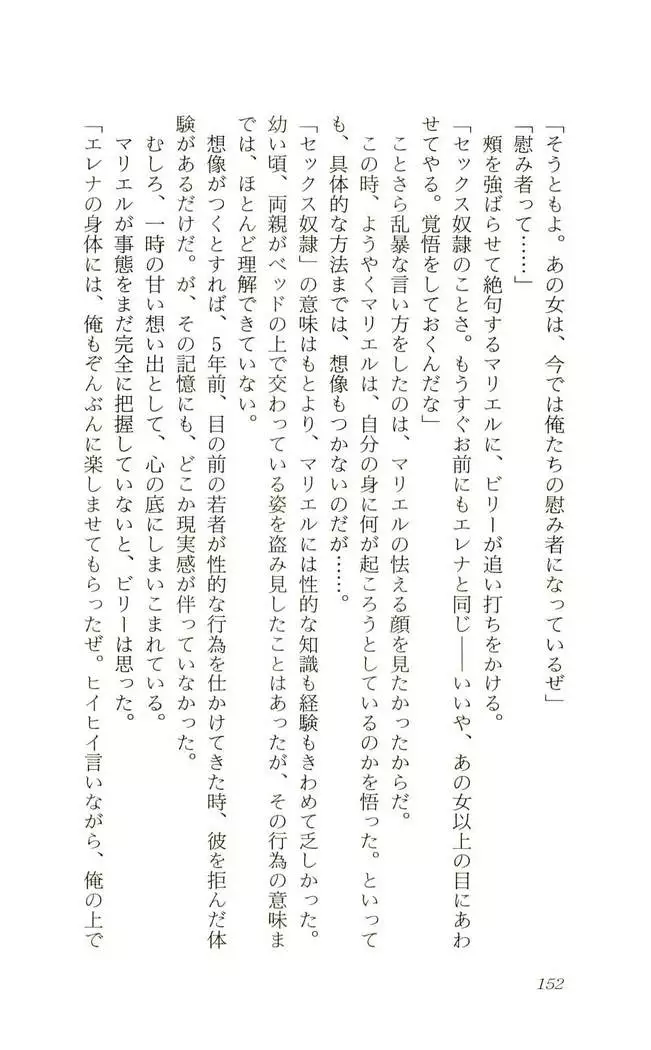 「そうともよ。あの女は、今では俺たちの慰み者になっているぜ」
「慰み者って……」
頰を強ばらせて絶句するマリエルに、ビリーが追い打ちをかける。
「セックス奴隷のことさ。もうすぐお前にもエレナと同じ――いいや、あの女以上の目にあわ
せてやる。覚悟をしておくんだな」
ことさら乱暴な言い方をしたのは、マリエルの怯える顔を見たかったからだ。
この時、ようやくマリエルは、自分の身に何が起ころうとしているのかを悟った。といって
も、具体的な方法までは、想像もつかないのだが……。
「セックス奴隷」の意味はもとより、マリエルには性的な知識も経験もきわめて乏しかった。
幼い頃、両親がベッドの上で交わっている姿を盗み見したことはあったが、その行為の意味ま
では、ほとんど理解できていない。
想像がつくとすれば、5年前、目の前の若者が性的な行為を仕かけてきた時、彼を拒んだ体
験があるだけだ。が、その記憶にも、どこか現実感が伴っていなかった。
むしろ、一時の甘い想い出として、心の底にしまいこまれている。
マリエルが事態をまだ完全に把握していないと、ビリーは思った。
「エレナの身体には、俺もぞんぶんに楽しませてもらったぜ。ヒイヒイ言いながら、俺の上で
152